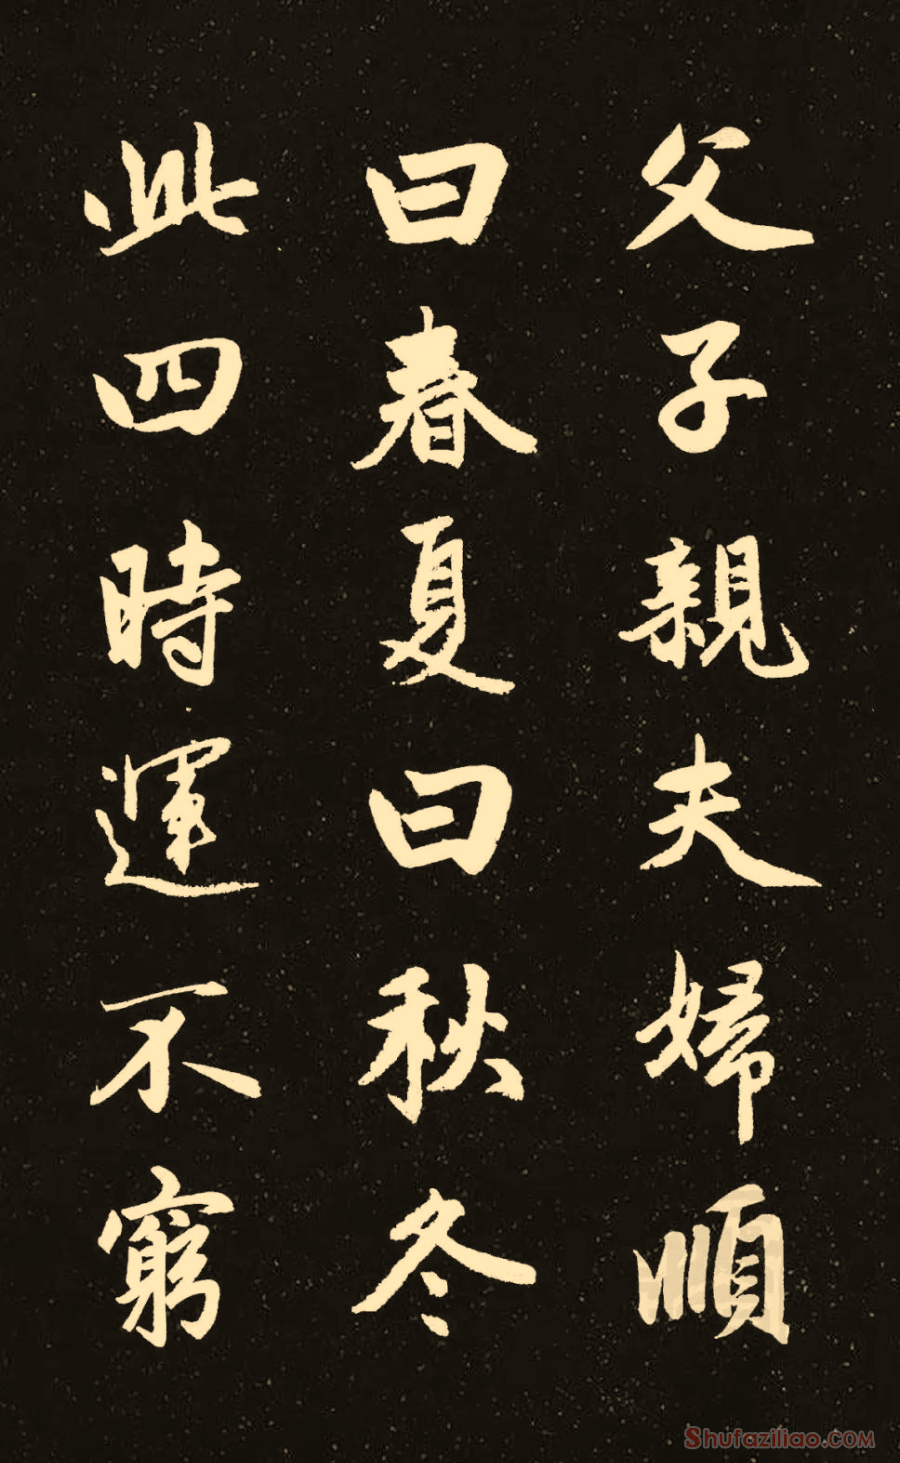 父子親夫婦順
曰春夏曰秋冬
此四時運不窮
Shufaziliao.COM